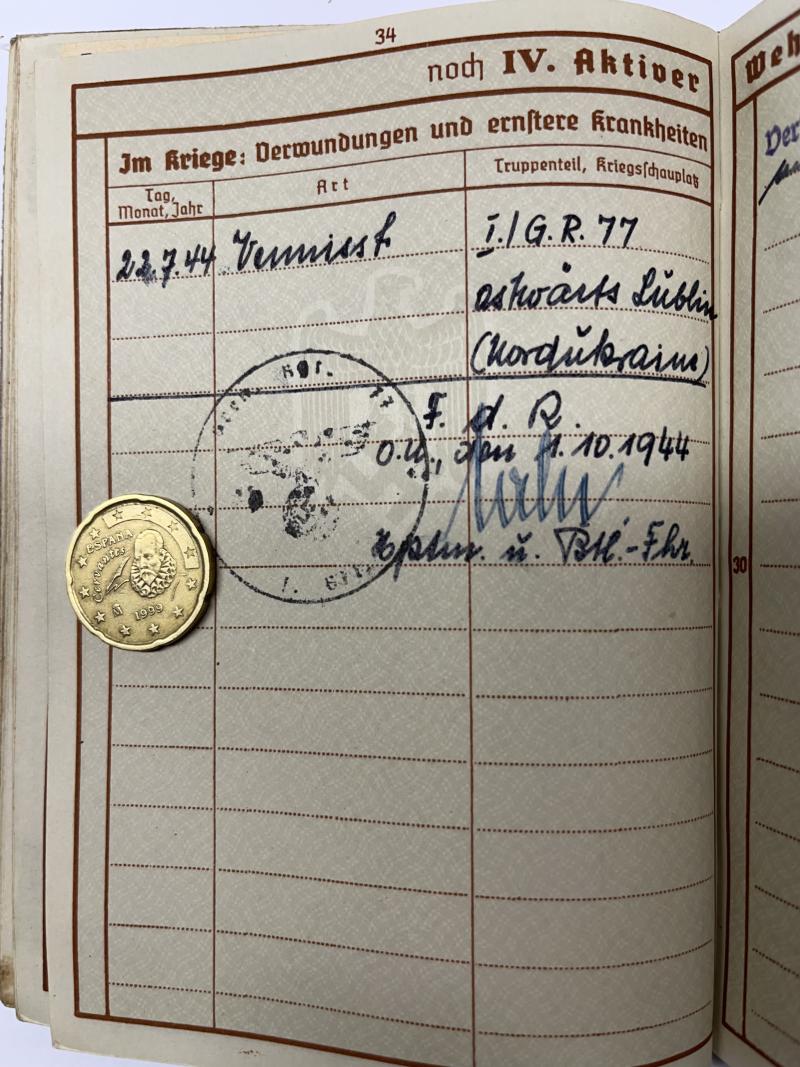 34
noch IV. Aktiver
Im Kriege: Verwundungen und ernstere Krankheiten
Tag, Monat, Jahr
Art
Truppenteil, Kriegsschauplatz
22.7.44 Vermisst I./G.R. 77
ostwärts Lublin
(Nordukraine)
F. d. R.
O.U., den 1.10.1944
Hptm. u. Btl.-Fhr.
ESPAÑA
Cervantes
M 1999
Weh
Ver
30